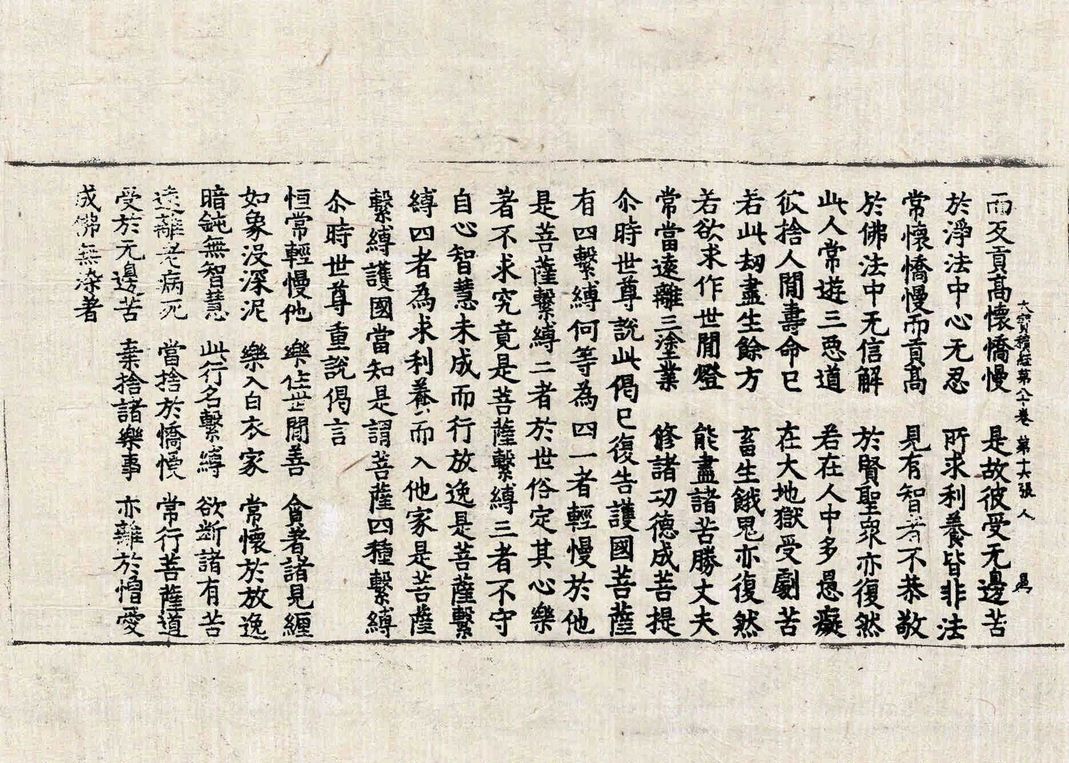 大寶積經第八十卷 第十六張 人
而反貢高懷憍慢 是故彼受无邊苦
於淨法中心无忍 所求利養皆非法
常懷憍慢而貢高 見有智者不恭敬
於佛法中无信解 於賢聖衆亦復然
此人常遊三惡道 若在人中多愚癡
彼捨人閒壽命已 在大地獄受劇苦
若此劫盡生餘方 畜生餓鬼亦復然
若欲求作世閒燈 能盡諸苦勝丈夫
常當遠離三塗業 修諸功德成菩提
尒時世尊說此偈已復告護國菩薩
有四繫縛何等為四一者輕慢於他
是菩薩繫縛二者於世俗定其心樂
者不求究竟是菩薩繫縛三者不守
自心智慧未成而行放逸是菩薩繫
縛四者為求利養而入他家是菩薩
繫縛護國當知是謂菩薩四種繫縛
尒時世尊重說偈言
恒常輕慢他 樂住世閒善 貪著諸見纏
如象沒深泥 樂入白衣家 常懷於放逸
暗鈍無智慧 此行名繫縛 欲斷諸有苦
遠離老病死 當捨於憍慢 常行菩薩道
受於无邊苦 棄捨諸樂事 亦離於憎愛
成佛無染著